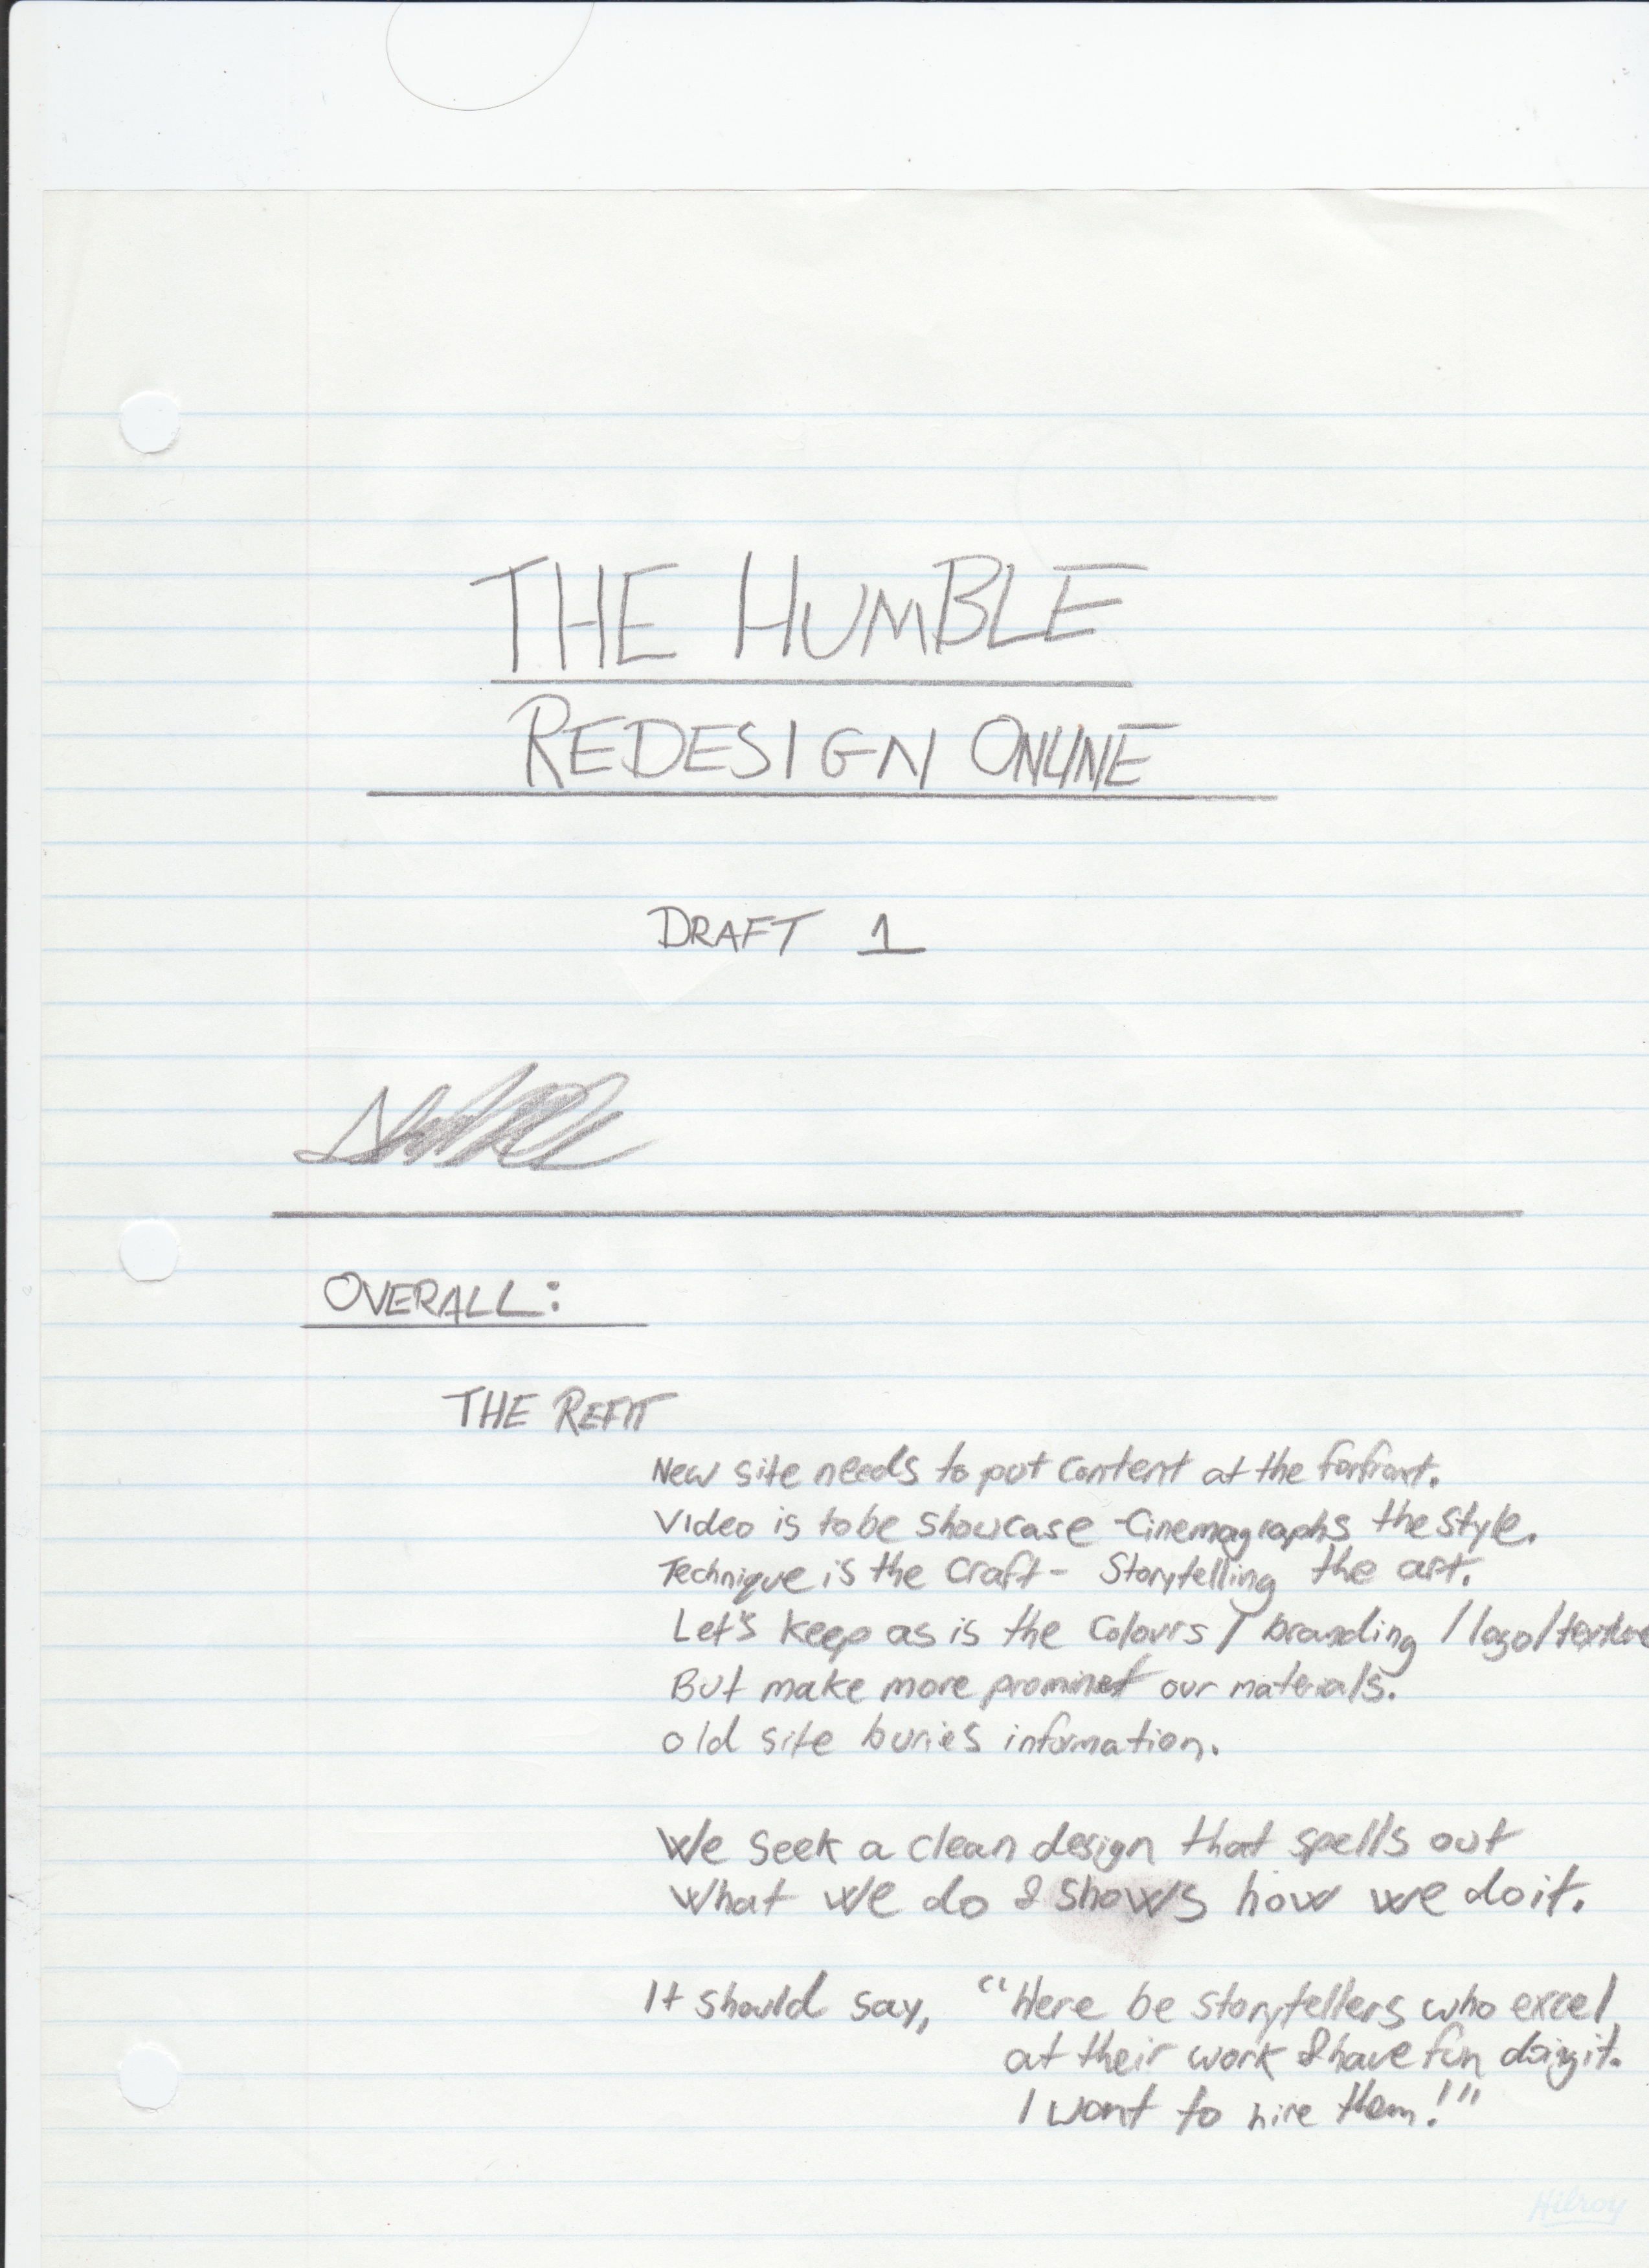 THE HUMBLE
REDESIGN ONLINE
DRAFT 1
OVERALL:
THE REFIT
New site needs to put content at the forfront.
Video is to be showcase - Cinemagraphs the style.
Technique is the craft - Storytelling the art.
Let's keep as is the colours / branding / logo/texture
But make more prominet our materials.
old site buries information.
We seek a clean design that spells out
what we do & shows how we do it.
It should say, "Here be storytellers who excel
at their work & have fun doing it.
I want to hire them!"
Hilroy